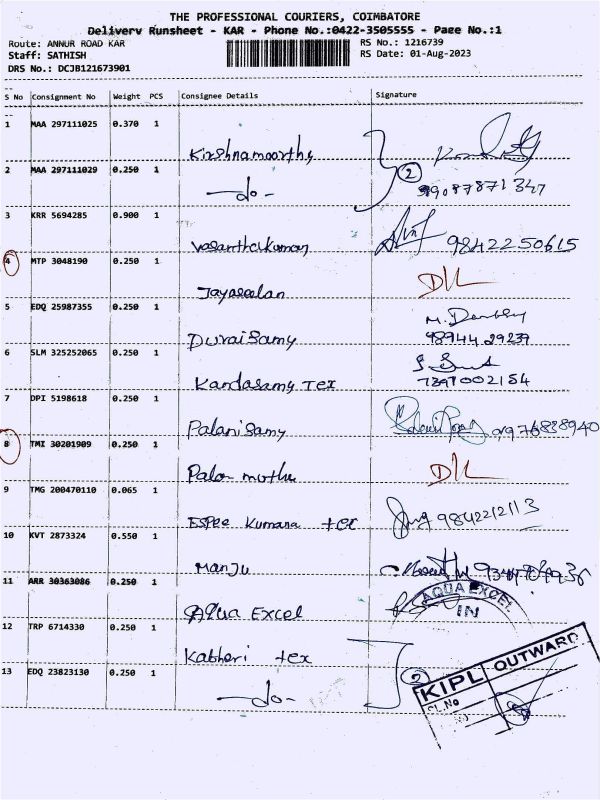 THE PROFESSIONAL COURIERS, COIMBATORE
Delivery Runsheet - KAR - Phone No.:0422-3505555 - Page No.:1
Route: ANNUR ROAD KAR RS No.: 1216739
Staff: SATHISH RS Date: 01-Aug-2023
DRS No.: DCJB121673901
S No Consignment No Weight PCS Consignee Details Signature
1 MAA 297111025 0.370 1
Kirshnamoorthy
2 MAA 297111029 0.250 1
-do- 2
3 KRR 5694285 0.900 1
Vasanthakumar 9842250615
4 MTP 3048190 0.250 1
Jayaseelan D/L
5 EDQ 25987355 0.250 1
Duraisamy 98944 29239
6 SLM 325252065 0.250 1
Kandasamy Tex 7397002154
7 DPI 5198618 0.250 1
Palanisamy
8 TMI 30201909 0.250 1
D/L
9 TMG 200470110 0.065 1
Espee Kumara tex 9842212113
10 KVT 2873324 0.550 1
Manju
11 ARR 30363086 0.250 1
Aqua Excel
AQUA EXCEL
IN
12 TRP 6714330 0.250 1
Katheri tex
13 EDQ 23823130 0.250 1
-do- 2
KIPL OUTWARD
SL.No